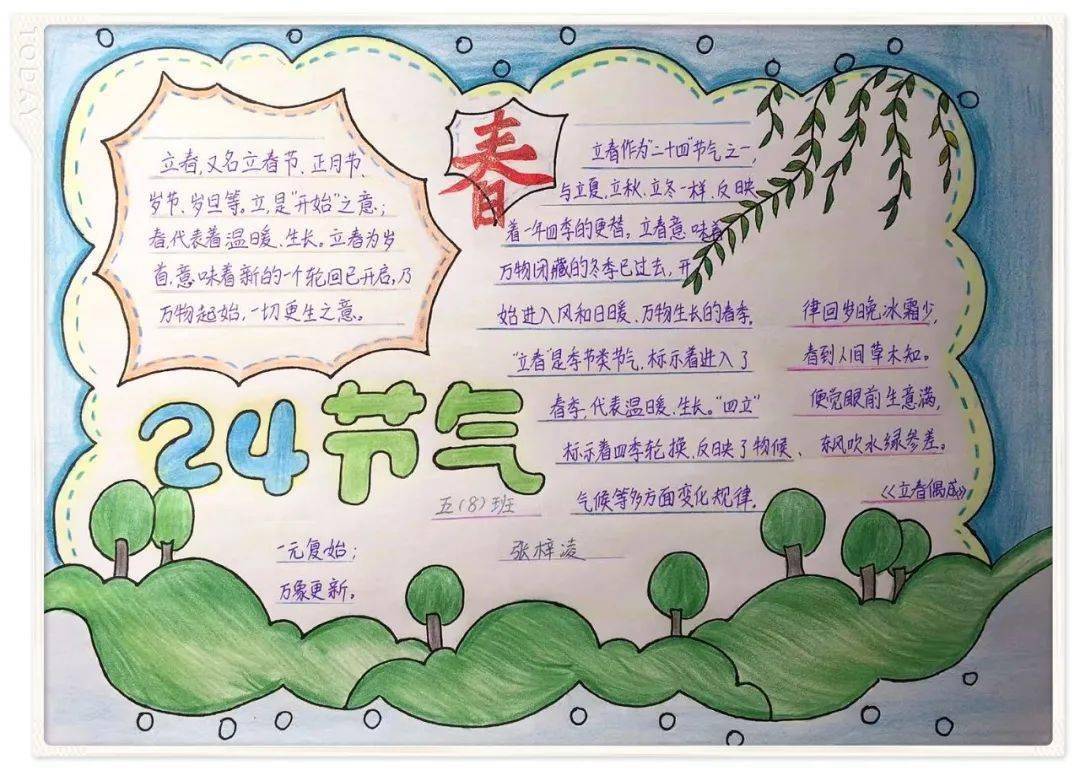 TODAY
立春,又名立春节、正月节、
岁节、岁旦等。立,是“开始”之意;
春,代表着温暖、生长。立春为岁
首,意味着新的一个轮回已开启,乃
万物起始,一切更生之意。
春
立春作为“二十四”节气之一,
与立夏,立秋、立冬一样,反映
着一年四季的更替。立春意味着
万物闭藏的冬季已过去,开
始进入风和日暖、万物生长的春季.
“立春”是季节类节气,标示着进入了
春季,代表温暖、生长。“四立”
标示着四季轮换,反映了物候、
气候等多方面变化规律.
律回岁晚冰霜少,
春到人间草木知。
便觉眼前生意满,
东风吹水绿参差。
《立春偶成》
24节气
五(8)班
张梓凌
一元复始;
万象更新。